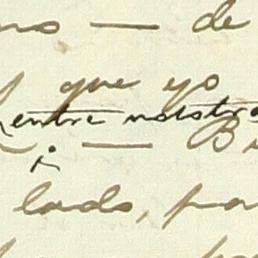 no — de
que yo
entre nosotro
— B
lado, par